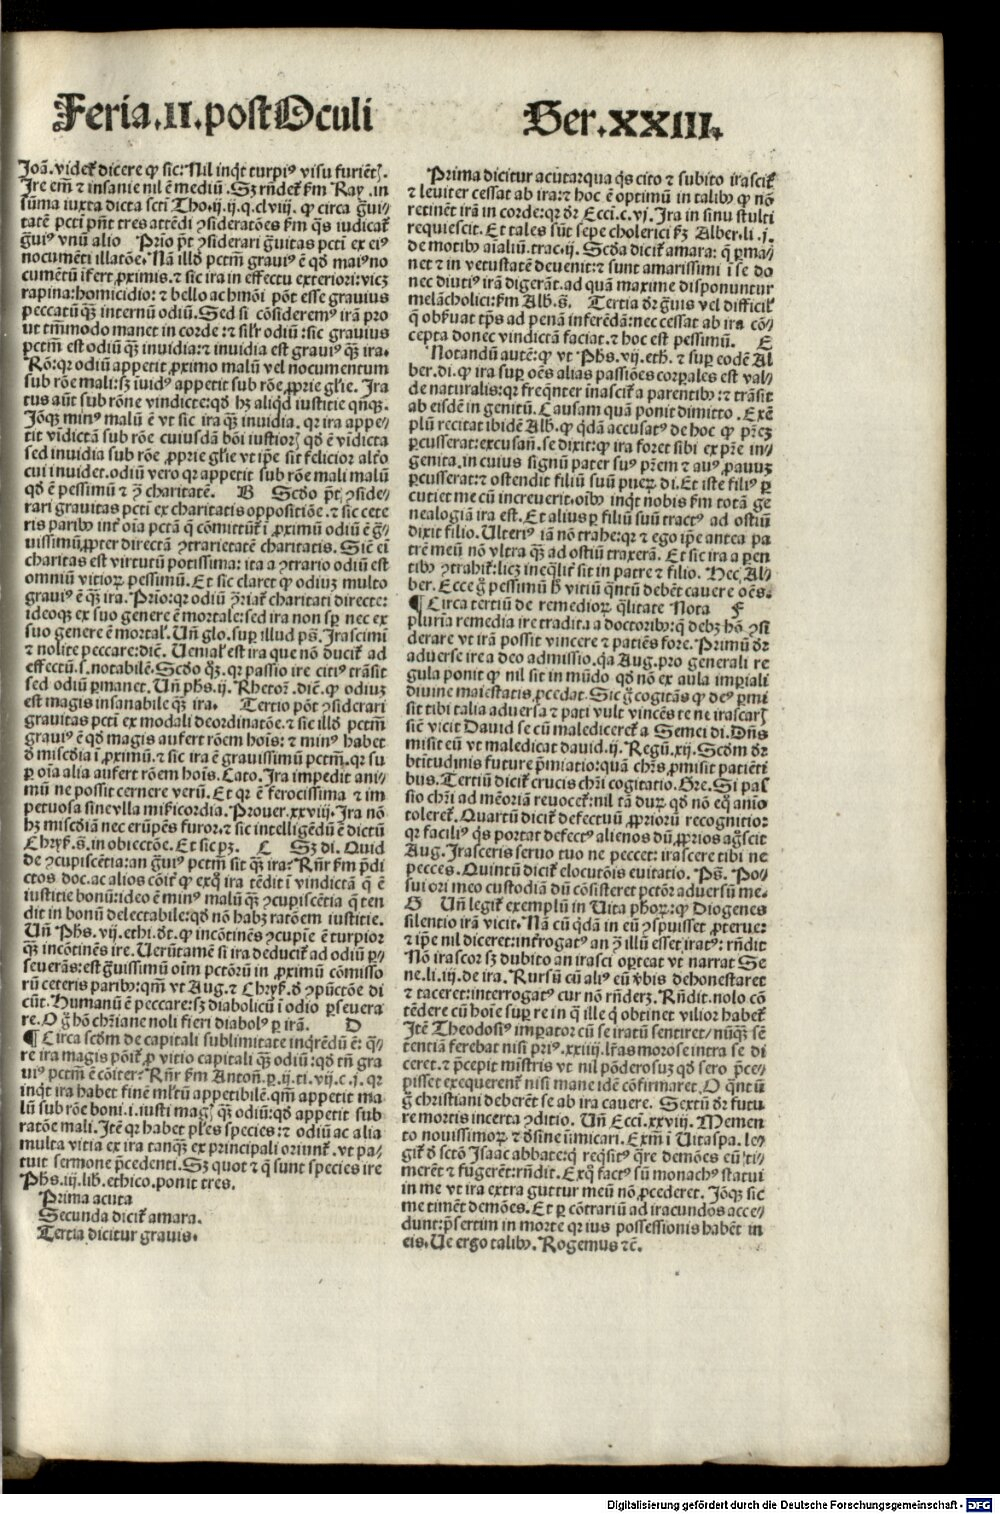 Feria.II.post Oculi
Ser.XXIII.
Joã. videt᷑ dicere ꝙ sic: Nil inqͥt turpiꝰ visu furiẽtꝭ.
Ire em̃ ⁊ insanie nil ẽ mediũ. Sꝫ rñdet᷑ ẜm Ray. in
sũma iuxta dicta scti Tho. ij. ij. q. clviij. ꝙ circa g̃ui⸗
tatẽ pcti pñt tres attẽdi ꝯsideratões ẜm qͣs iudicat᷑
g̃uiꝰ vnũ alio Prio p̃t ꝯsiderari g̃uitas pcti ex eiꝰ
nocumẽti illatõe. Nã illđ pctm̃ grauiꝰ ẽ qđ maiꝰ no
cumẽtũ ĩfert ꝓximis. ⁊ sic ira in effectu exteriori: vicꝫ
rapina: homicidio: ⁊ bello ac hm̃õi põt esse grauius
peccatũ qͣꝫ internũ odiũ. Sed si cõsideremꝰ irã pro
vt tm̃modo manet in corde: ⁊ sil̃r odiũ: sic grauius
pctm̃ est odiũ qͣꝫ inuidia: ⁊ inuidia est grauiꝰ qͣꝫ ira.
Rõ: qꝛ odiũ appetit ꝓximo malũ vel nocumentum
sub rõe mali: sꝫ ĩuidꝰ appetit sub rõe ꝓprie gl̃ie. Ira
tus aũt sub rõne vindicte: qđ hꝫ aliqͥd iustitie qñqꝫ.
Jõqꝫ minꝰ malũ ẽ vt sic ira qͣꝫ inuidia. qꝛ ira appe⸗
tit vĩdictã sub rõe cuiusdã bõi iustiorꝭ qđ ẽ vĩdicta
sed inuidia sub rõe ꝓprie gl̃ie vt ip̃e sit felicior alt᷑o
cui inuidet. odiũ vero qꝛ appetit sub rõe mali malũ
qđ ẽ pessimũ ⁊ ꝯ̃ charitatẽ. B Scđo p̃t ꝯside⸗
rari grauitas pcti ex charitatis oppositiõe. ⁊ sic cete
ris paribꝰ int᷑ oĩa pctã q̃ cõmittũt᷑ ĩ ꝓximũ odiũ ẽ g̃⸗
uissimũ ꝓpter directã ꝯtrarietatẽ charitatis. Sic̃ eĩ
charitas est virtutũ potissima: ita a ꝯtrario odiũ est
omniũ vitioꝝ pessimũ. Et sic claret ꝙ odiuꝫ multo
grauiꝰ ẽ qͣꝫ ira. Prio: qꝛ odiũ ꝯ̃riat᷑ charitati directe:
ideoqꝫ ex suo genere ẽ mortale: sed ira non sp̃ nec ex
suo genere ẽ mortal᷑. Uñ glo. suꝑ illud ps̃. Irascimĩ
⁊ nolite peccare: diẽ. Uenial᷑ est ira que nõ ducit᷑ ad
effectũ. s. notabilẽ. Scđo qͥꝫ. qꝛ passio ire citiꝰ trãsit
sed odiũ ꝑmanet. Uñ phs̃. ij. Rhetoꝝ. diẽ. ꝙ odiuꝫ
est magis insanabile qͣꝫ ira. Tertio põt ꝯsiderari
grauitas pcti ex modali deordinatõe. ⁊ sic illđ pctm̃
grauiꝰ ẽ qđ magis aufert rõem hoĩs: ⁊ minꝰ habet
đ mise̾dia ĩ ꝓximũ. ⁊ sic ira ẽ grauissimũ pctm̃. qꝛ su
ꝑ oĩa alia aufert rõem hoĩs. Cato. Ira impedit ani⸗
mũ ne possit cernere verũ. Et qꝛ ẽ ferocissima ⁊ im
petuosa sine vlla mis̃icordia. Prouer. xxviij. Ira nõ
hꝫ mise̾diã nec erũpẽs furor. ⁊ sic intelligẽdũ ẽ dictũ
Chryẜ. s̃. in obiectõe. Et sic pꝫ. C Sꝫ di. Quid
de ꝯcupiscẽtia: an g̃uiꝰ pctm̃ sit qͣꝫ ira? Rñr ẜm p̃di
ctos doc. ac alios cõit᷑ ꝙ exqͦ ira tẽdit ĩ vindictã q̃ ẽ
iustitie bonũ: ideo ẽ minꝰ malũ qͣꝫ ꝯcupiscẽtia q̃ ten
dit in bonũ delectabile: qđ nõ habꝫ ratõem iustitie.
Uñ Phs̃. vij. ethi. đt. ꝙ incõtinẽs ꝯcupĩe ẽ turpior
qͣꝫ incõtinẽs ire. Uerũtamẽ si ira deducit᷑ ad odiũ ꝑ⸗
seuerãs: est g̃uissimũ oĩm pctõrũ in ꝓximũ cõmisso
rũ ceteris paribꝰ: qm̃ vt Aug. ⁊ Chryẜ. đ ꝯpũctõe di
cũt. Humanũ ẽ peccare: sꝫ diabolicũ ĩ odio ꝑseuera
re. O g̃ hõ chr̃iane noli fieri diabolꝰ ꝑ irã. D
¶ Circa scđm de capitali sublimitate inqͥrẽdũ ẽ: qͣ⸗
re ira magis põit᷑ ꝓ vitio capitali qͣꝫ odiũ: qđ tñ gra
uiꝰ pctm̃ ẽ cõiter? Rñr ẜm Antoñ. ꝑ. ij. ti. vij. c. j. qꝛ
inqͥt ira habet finẽ ml̃tũ appetibilẽ. qm̃ appetit ma
lũ sub rõe boni. i. iusti magꝭ qͣꝫ odiũ: qđ appetit sub
ratõe mali. Itẽ qꝛ habet pl̃es species: ⁊ odiũ ac alia
multa vitia ex ira tanqͣꝫ ex principali oriunt᷑. vt pa⸗
tuit sermone p̃cedenti. Sꝫ quot ⁊ q̃ sunt species ire
Phs̃. iij. lib. ethico. ponit tres.
Prima acuta
Secunda dicit᷑ amara.
Tertia dicitur grauis.
Prima dicitur acuta: qua qͥs cito ⁊ subito irascit᷑
⁊ leuiter cessat ab ira: ⁊ hoc ẽ optimũ in talibꝰ ꝙ nõ
retinẽt irã in corde: qꝛ đr Ecci. c. vj. Ira in sinu stulti
requiescit. Et tales sũt sepe cholerici ẜꝫ Alber. li. j.
de motibꝰ aĩaliũ. trac. ij. Scđa dicit᷑ amara: q̃ ꝑma⸗
net ⁊ in vetustatẽ deuenit: ⁊ sunt amarissimi ĩ se do
nec diutiꝰ irã digerãt. ad quã maxime disponuntur
melãcholici: ẜm Alb̃. s̃. Tertia đr g̃uis vel difficil᷑
q̃ obs̃uat tp̃s ad penã inferẽdã: nec cessat ab ira cõ⸗
cepta donec vindictã faciat. ⁊ hoc est pessimũ. E
Notandũ autẽ: ꝙ vt Phs̃. vij. eth. ⁊ suꝑ eodẽ Al
ber. di. ꝙ ira suꝑ oẽs alias passiões corꝑales est val⸗
de naturalis: qꝛ freqͣnter inascit᷑ a parentibꝰ: ⁊ trãsit
ab eisdẽ in genitũ. Causam quã ponit dimitto. Exẽ
plũ recitat ibidẽ Alb̃. ꝙ qͥdã accusatꝰ de hoc ꝙ pr̃eꝫ
ꝑcusserat: excusañ. se dixit: ꝙ ira foret sibi ex pr̃e in⸗
genita. in cuius signũ pater suꝰ pr̃em ⁊ auꝰ ꝓauuꝫ
ꝑcusserat: ⁊ ostendit filiũ suũ pueꝝ di. Et iste filiꝰ ꝑ
cutiet me cũ increuerit. oĩbꝰ inqͥt nobis ẜm totã ge
nealogiã ira est. Et alius ꝑ filiũ suũ tractꝰ ad ostiũ
dixit filio. Ulteriꝰ iã nõ trahe: qꝛ ⁊ ego ip̃e antea pa
trẽ meũ nõ vltra qͣꝫ ad ostiũ traxerã. Et sic ira a ꝑen
tibꝰ ꝯtrahit᷑: licꝫ ineqͣlit᷑ sit in patre ⁊ filio. Hec Al⸗
ber. Ecce g̃ pessimũ h̃ vitiũ qͣntũ debẽt cauere oẽs.
¶ Circa tertiũ de remedioꝝ qͣlitate Nota F
pluria remedia ire tradita a doctoribꝰ: q̃ debꝫ hõ ꝯsi
derare vt irã possit vincere ⁊ patiẽs fore. Primũ đr
aduerse ire a deo admissio. qͣa Aug. pro generali re
gula ponit ꝙ nil sit in mũdo qđ nõ ex aula imꝑiali
diuine maiestatis ꝓcedat. Sic g̃ cogitãs ꝙ deꝰ ꝑmi
sit tibi talia aduersa ⁊ pati vult vincẽs te ne irascarꝭ
sic̃ vicit Dauid se cũ malediceret᷑ a Semei di. Dñs
misit eũ vt maledicat dauid. ij. Regũ. xij. Scđm đr
btĩtudinis future p̃miatio: quã chr̃s ꝓmisit patiẽti
bus. Tertiũ dicit᷑ crucis chr̃i cogitatio. Gre. Si pas
sio chr̃i ad mẽoriã reuocet᷑: nil tã duꝝ qđ nõ eqͦ anio
toleret᷑. Quartũ dicit᷑ defectuũ ꝓprioꝝ recognitio:
qꝛ faciliꝰ qͥs portat defectꝰ alienos dũ ꝓprios agͦscit
Aug. Irasceris seruo tuo ne peccet: irascere tibi ne
pecces. Quintũ dicit᷑ elocutõis euitatio. Ps̃. Po⸗
sui ori meo custodiã dũ cõsisteret pctõr aduersũ me.
G Uñ legit᷑ exemplũ in Uita pħoꝝ: ꝙ Diogenes
silentio irã vicit. Nã cũ qͥdã in eũ ꝯspuisset ꝓterue:
⁊ ip̃e nil diceret: int᷑rogatꝰ an ꝯ̃ illũ esset iratꝰ: rñdit
Nõ irascor sꝫ dubito an irasci oꝑteat vt narrat Se
ne. li. iij. de ira. Rursũ cũ aliꝰ eũ v̾bis dehonestaret
⁊ taceret: interrogatꝰ cur nõ rñderꝫ. Rñdit. nolo cõ
tẽdere cũ hoĩe suꝑ re in q̃ ille qͥ obtinet vilior habet᷑
Itẽ Theodosiꝰ imꝑator cũ se iratũ sentiret/ nũqͣꝫ sẽ
tentiã ferebat nisi priꝰ. xxiiij. l̃ras morose intra se di
ceret. ⁊ p̃cepit mĩstris vt nil põderosuꝫ qđ sero p̃ce⸗
pisset exequerent᷑ nisi mane idẽ cõfirmaret. O qͣntũ
g̃ christiani deberẽt se ab ira cauere. Sextũ đr futu
re mortis incerta ꝯditio. Uñ Ecci. xxviij. Memen
to nouissimoꝝ ⁊ đsine inimicari. Exm̃ ĩ Uitaspa. le⸗
git᷑ đ sctõ Isaac abbate: q̃ reqͥsitꝰ qͣre demões eũ ti⸗
merẽt ⁊ fugerẽt: rñdit. Exqͦ factꝰ sũ monachꝰ statui
in me vt ira extra guttur meũ nõ ꝓcederet. Jõqꝫ sic
me timẽt demões. Et ꝑ cõtrariũ ad iracundos acce⸗
dunt: p̃sertim in morte qꝛ ius possessionis habẽt in
eis. Ue ergo talibꝰ. Rogemus ⁊c̃.
Digitalisierung gefördert durch die Deutsche Forschungsgemeinschaft - DFG